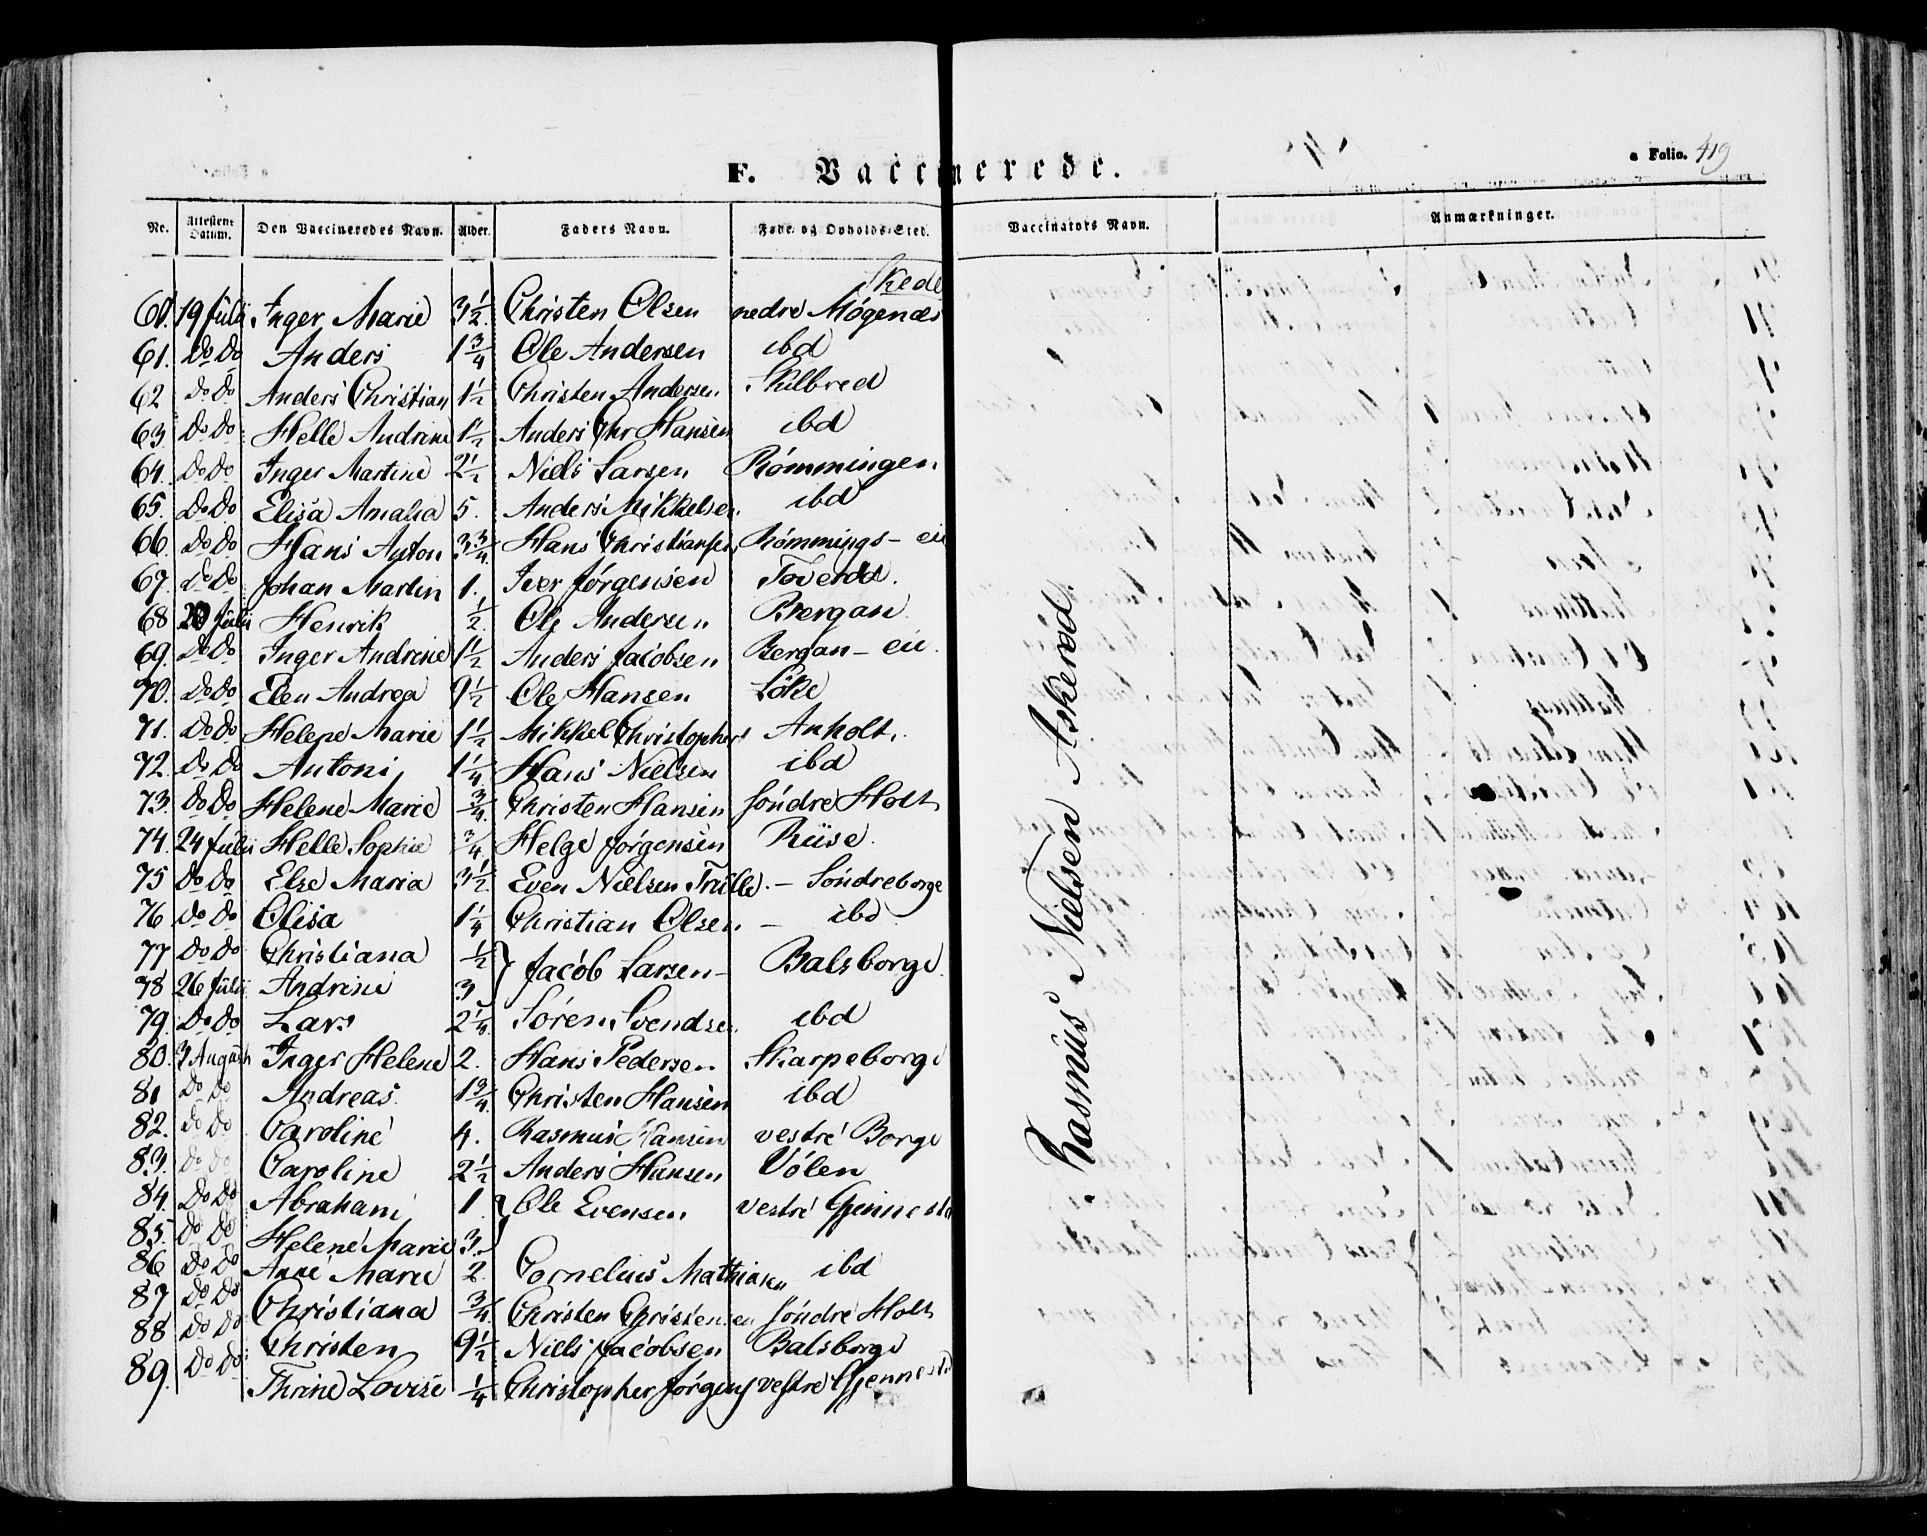 Folio. 419
F. Vaccinerede.
Nr. Attestens Datum. Den Vaccineredes Navn. Alder. Faders Navn. Føde- og Opholds-Sted. Vaccinators Navn. Anmærkninger.
Skede
60. 19 Juli Inger Marie 3 1/2 Christen Olsen nedre Møgenæs
61. Do Do Anders 1 3/4 Ole Andersen ibd
62 Do Do Anders Christian 1 1/2 Christen Andersen Skilbred
63. Do Do Helle Andrine 1 1/2 Anders Chr Hansen ibd
64. Do Do Inger Martine 2 1/2 Niels Larsen Rømmingen
65. Do Do Elisa Amalia 5. Anders Mikkelsen ibd
66. Do Do Hans Anton 3 3/4 Hans Christiansen Rømmings- eie
67. Do Do Johan Martin 1. Iver Jørgensen
68 20 Juli Henrik 1/2 Ole Andersen Bergan
69. Do Do Inger Andrine 1 1/2 Anders Jacobsen Bergan- eie
70. Do Do Elen Andrea 9 1/2 Ole Hansen Løke
71. Do Do Helene Marie 1 1/2 Mikkel Christophers Anholt.
72. Do Do Antoni 1 1/4 Hans Nielsen ibd
73. Do Do Helene Marie 3/4 Christen Hansen søndre Holt
74. 24 Juli Helle Sophie 3/4 Helge Jørgensen Riise
75 Do Do Else Maria 3 1/2 Even Nielsen - Søndreborge
76 Do Do Elisa 1 1/4 Christian Olsen - ibd
77 Do Do Christiana 1/2 } Jacob Larsen- Balsborge
78 26 Juli Andrine 3
79. Do Do Lars 2 1/4 Søren Svendsen ibd
80. 3 August Inger Helene 2. Hans Pedersen Skarpeborge
81 Do Do Andreas 1 3/4 Christen Hansen ibd
82. Do Do Caroline 4. Rasmus Hansen vestre Borge
83. Do Do Caroline 2 1/2 Anders Hansen Vølen
84. Do Do Abraham 1 } Ole Evensen vestre Gjennestad
85. Do Do Helene Marie 3.
86 Do Do Anne Marie 2 Cornelius Mathiasen ibd
87 Do Do Christiana 3/4 Christen Christensen søndre Holt
88 Do Do Christen 9 1/2 Niels Jacobsen Balsborge
89. Do Do Thrine Lovise 1/4 Christopher Jørgens vestre Gjennestad
Rasmus Nielsen Askerød